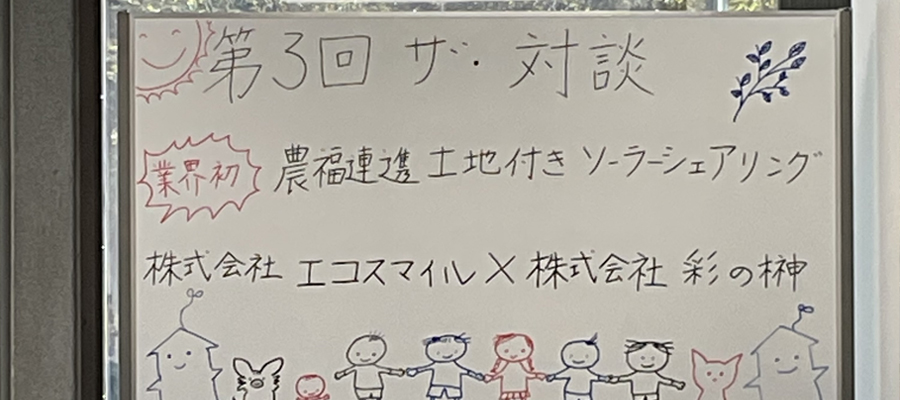 第3回 ザ・対談
業界初 農福連携 土地付き ソーラーシェアリング
株式会社 エコスマイル×株式会社 彩の榊